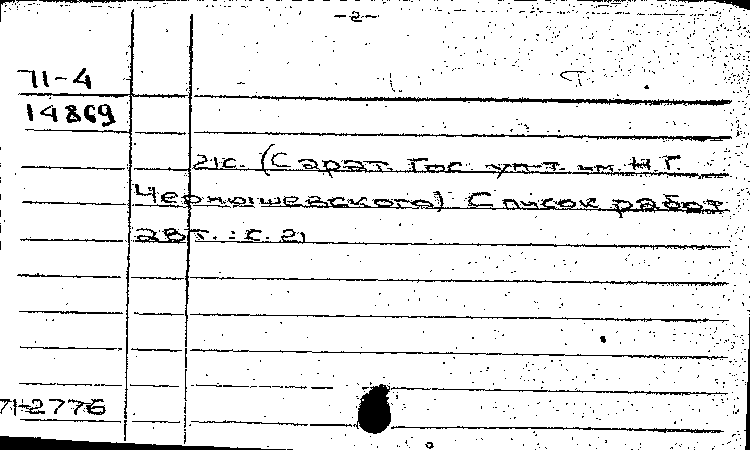 -2-
71-4
14869
21с. (Сарат. Гос. ун-т им. Н.Г.
Чернышевского) Список работ
авт.: с. 21
71-2776